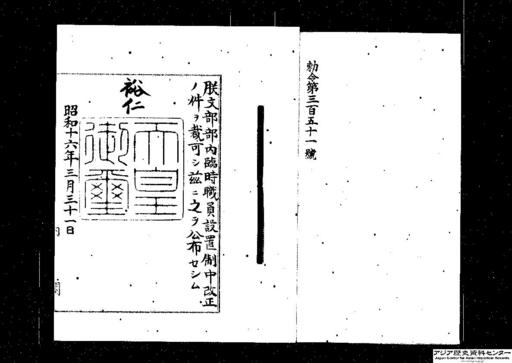 勅令第三百五十一號
朕文部部內臨時職員設置制中改正
ノ件ヲ裁可シ茲ニ之ヲ公布セシム
裕仁
天皇
御璽
昭和十六年三月三十一日
アジア歴史資料センター
Japan Center for Asian Historical Records